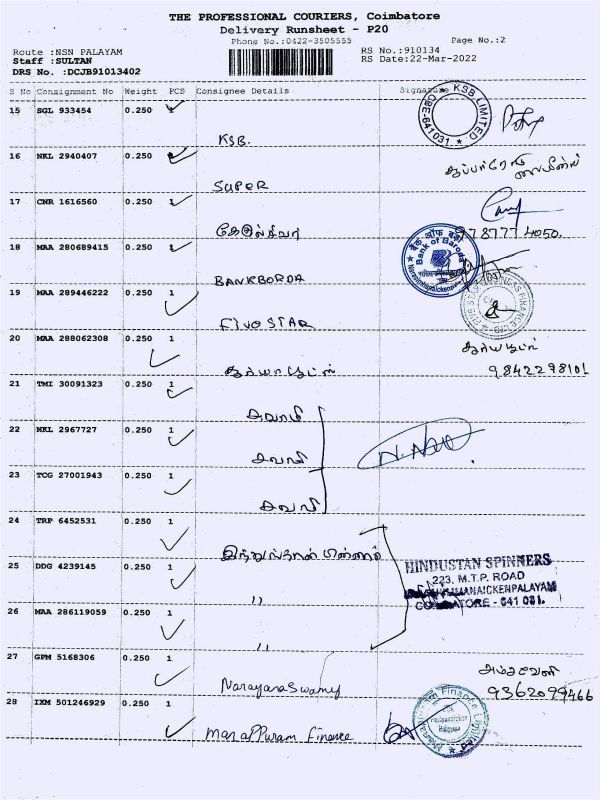 THE PROFESSIONAL COURIERS, Coimbatore
Delivery Runsheet - P20
Phone No.:0422-3505555
Page No.:2
Route :NSN PALAYAM
RS No.:910134
Staff :SULTAN
RS Date:22-Mar-2022
DRS No. :DCJB91013402
S No Consignment No Weight PCS Consignee Details Signature
15 SGL 933454 0.250 1
KSB.
KSB LIMITED
CBE-641031
16 NKL 2940407 0.250 1
SUPER
17 CNR 1616560 0.250 1
978777 4050.
18 MAA 280689415 0.250 1
BANKBORDA
बैंक ऑफ बड़ौदा
Bank of Baroda
19 MAA 289446222 0.250 1
FIVOSTAR
20 MAA 288062308 0.250 1
9842298101
21 TMI 30091323 0.250 1
சுவாமி
22 NKL 2967727 0.250 1
23 TCG 27001943 0.250 1
24 TRP 6452531 0.250 1
25 DDG 4239145 0.250 1
"
HINDUSTAN SPINNERS
223, M.T.P. ROAD
COIMBATORE - 641 031.
26 MAA 286119059 0.250 1
"
27 GPM 5168306 0.250 1
Narayanaswamy
9362099466
28 IXM 501246929 0.250 1
Manappuram Finance
Manappuram Finance Limited